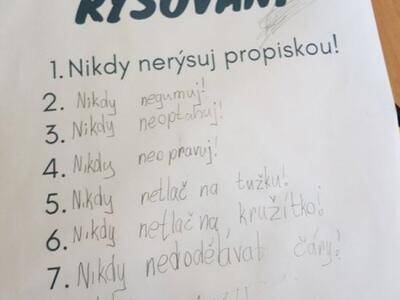 RÝSOVÁNÍ
1. Nikdy nerýsuj propiskou!
2. Nikdy negumuj!
3. Nikdy neoptahuj!
4. Nikdy neopravuj!
5. Nikdy netlač na tužku!
6. Nikdy netlač na, kružítko!
7. Nikdy nedodělávat čáry!